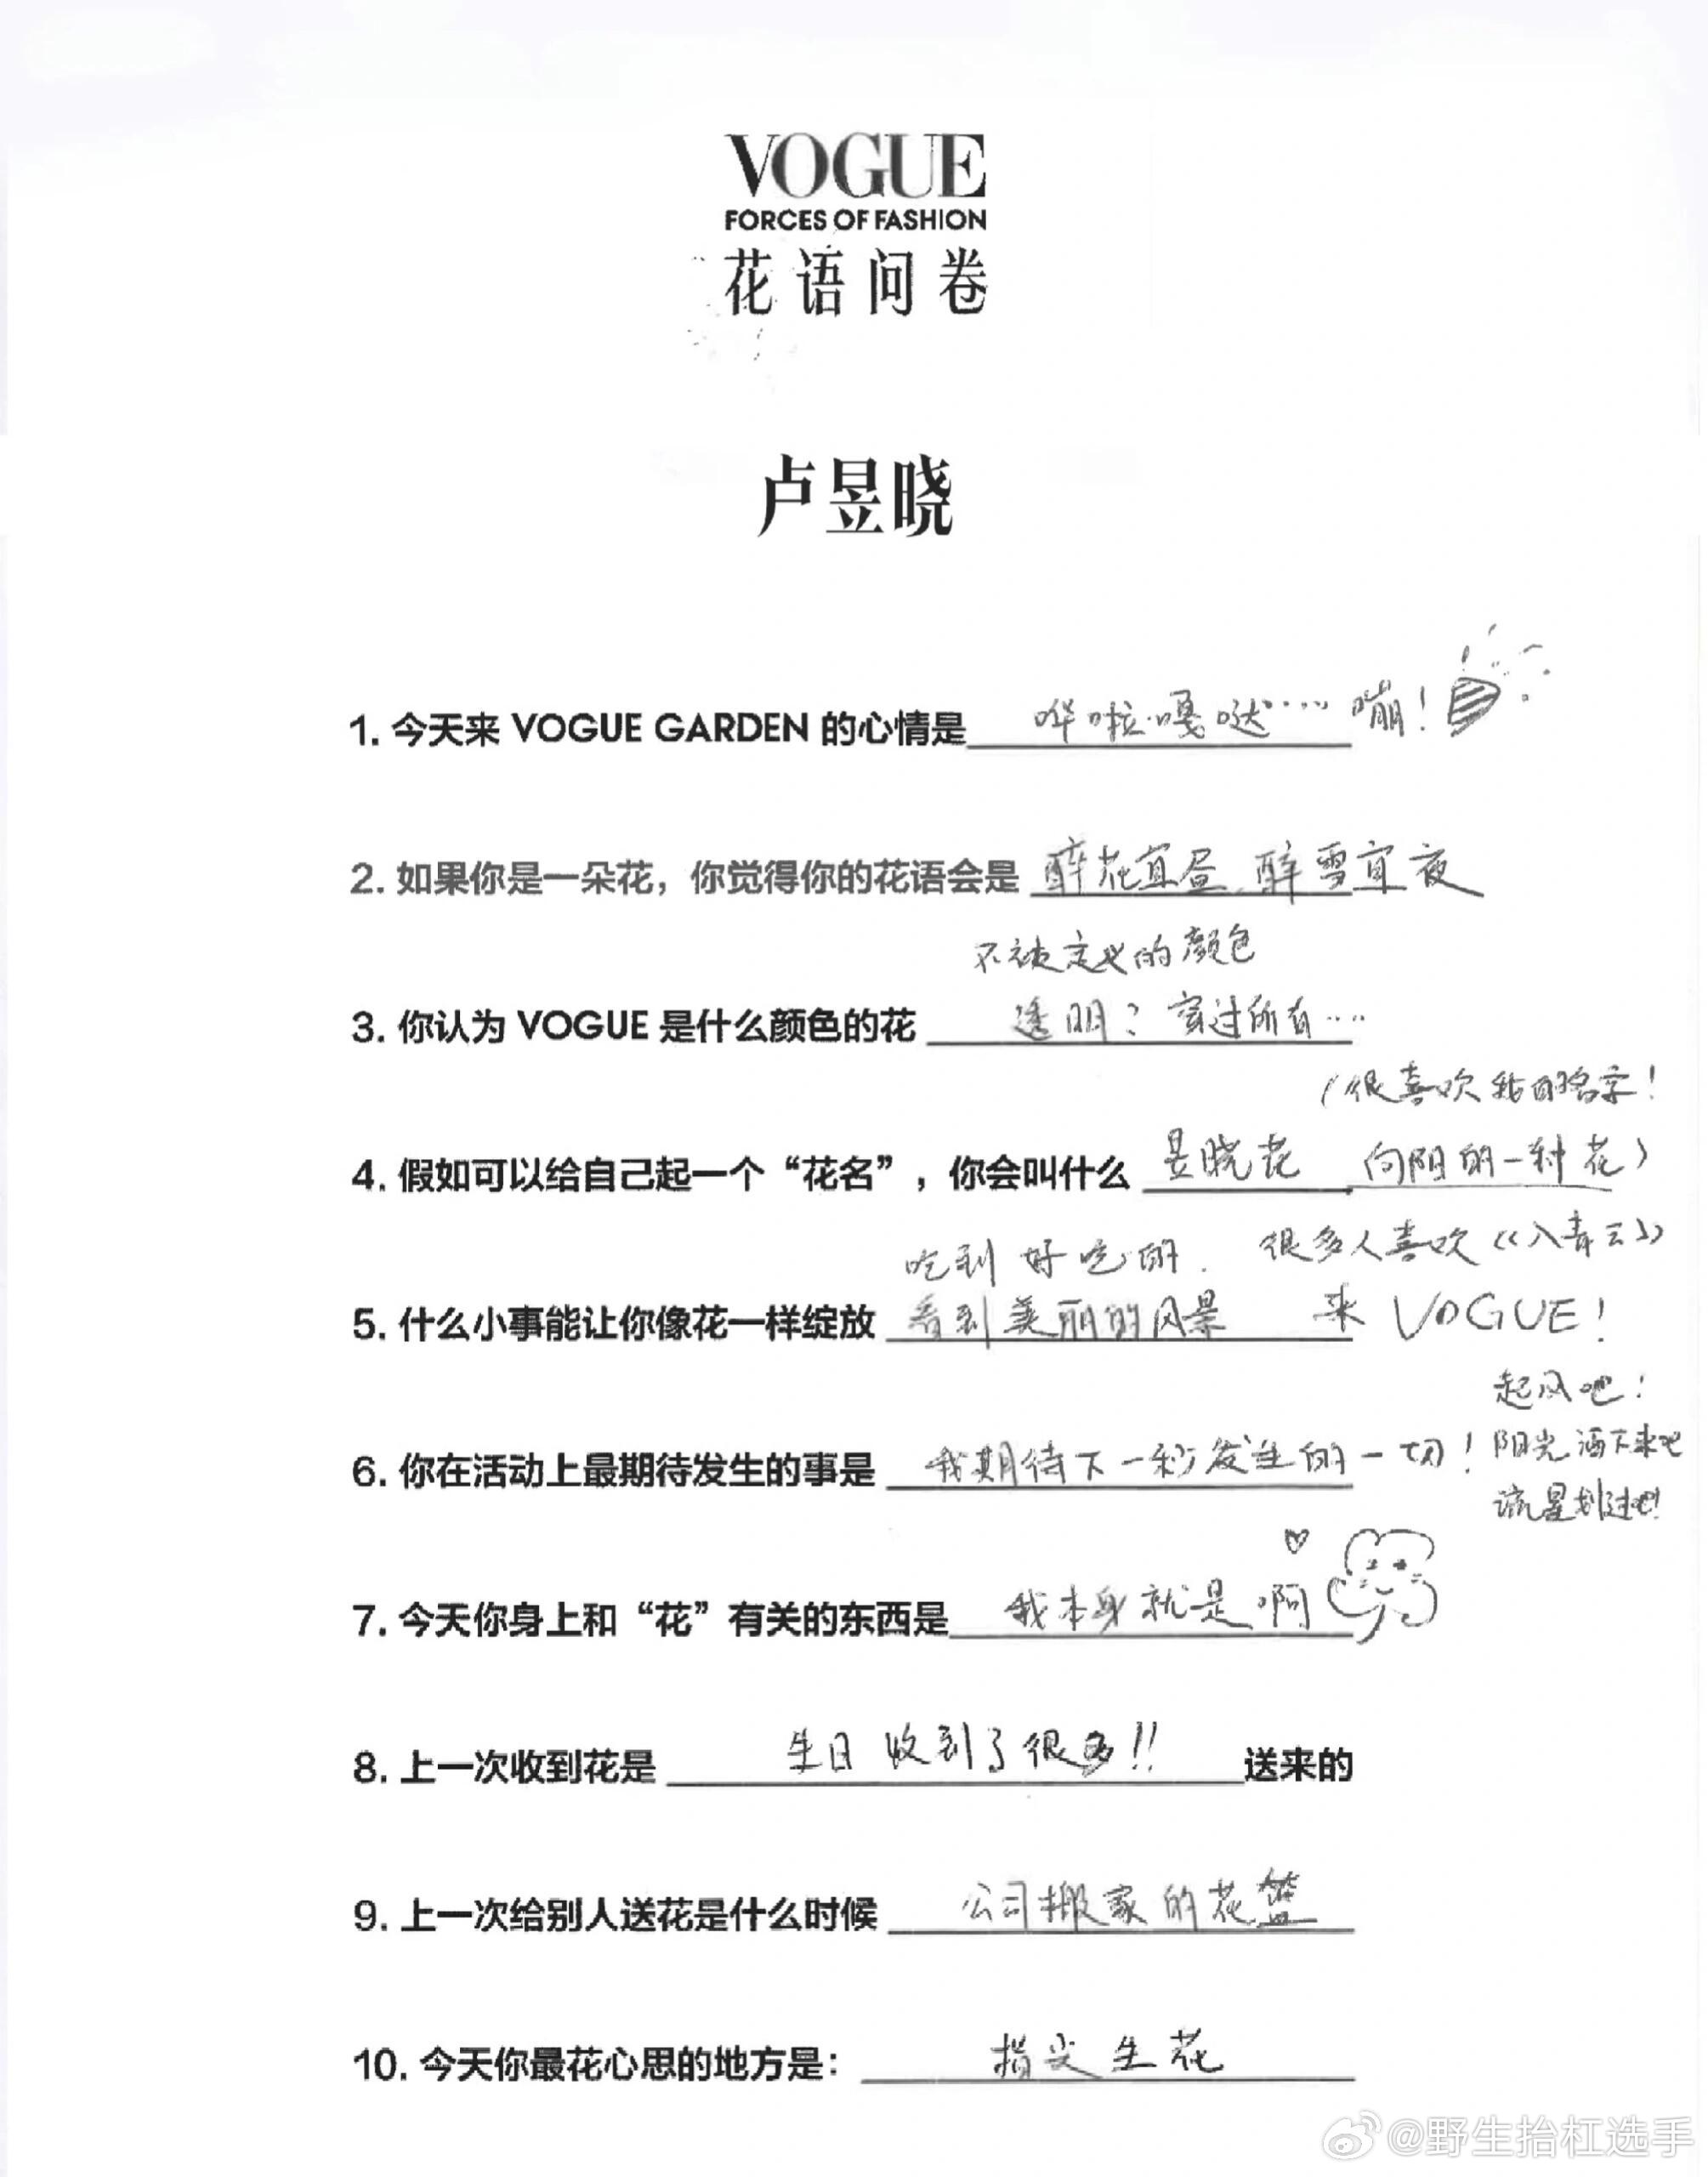 VOGUE
FORCES OF FASHION
花语问卷
卢昱晓
1. 今天来 VOGUE GARDEN 的心情是 哗啦嘎哒····· 嘣！
2. 如果你是一朵花，你觉得你的花语会是 醉花宜昼、醉雪宜夜
不被定义的颜色
3. 你认为 VOGUE 是什么颜色的花 透明？穿过所有····
（很喜欢我的名字！
4. 假如可以给自己起一个“花名”，你会叫什么 昱晓花 向阳的一种花）
吃到好吃的. 很多人喜欢《入青云》
5. 什么小事能让你像花一样绽放 看到美丽的风景 来 VOGUE！
起风吧！
6. 你在活动上最期待发生的事是 我期待下一秒发生的一切！阳光洒下来吧
流星划过吧！
7. 今天你身上和“花”有关的东西是 我本身就是啊
8. 上一次收到花是 生日收到了很多!! 送来的
9. 上一次给别人送花是什么时候 公司搬家的花篮
10. 今天你最花心思的地方是： 指尖生花
@野生抬杠选手